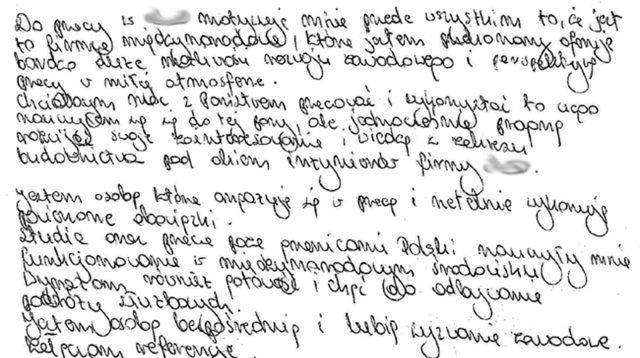 Do pracy w motywuje mnie przede wszystkim to, że jest
to firma międzynarodowa, która jestem przekonany oferuje
bardzo duże możliwości rozwoju zawodowego i perspektywę
pracy w miłej atmosferze.
Chciałbym móc z Państwem pracować i wykorzystać to czego
nauczyłem się do tej pory, ale jednocześnie pragnę
rozwijać swoje zainteresowanie i wiedzę z zakresu
budownictwa pod okiem inżynierów firmy .
Jestem osobą która angażuje się w pracę i rzetelnie wykonuje
powierzone obowiązki.
Studia oraz praca poza granicami Polski nauczyły mnie
funkcjonowania w międzynarodowym środowisku
Dynamizm również gotowość i chęć do odbywania
podróży służbowych.
Jestem osobą bezpośrednią i lubię wyzwania zawodowe.
Załączam referencje